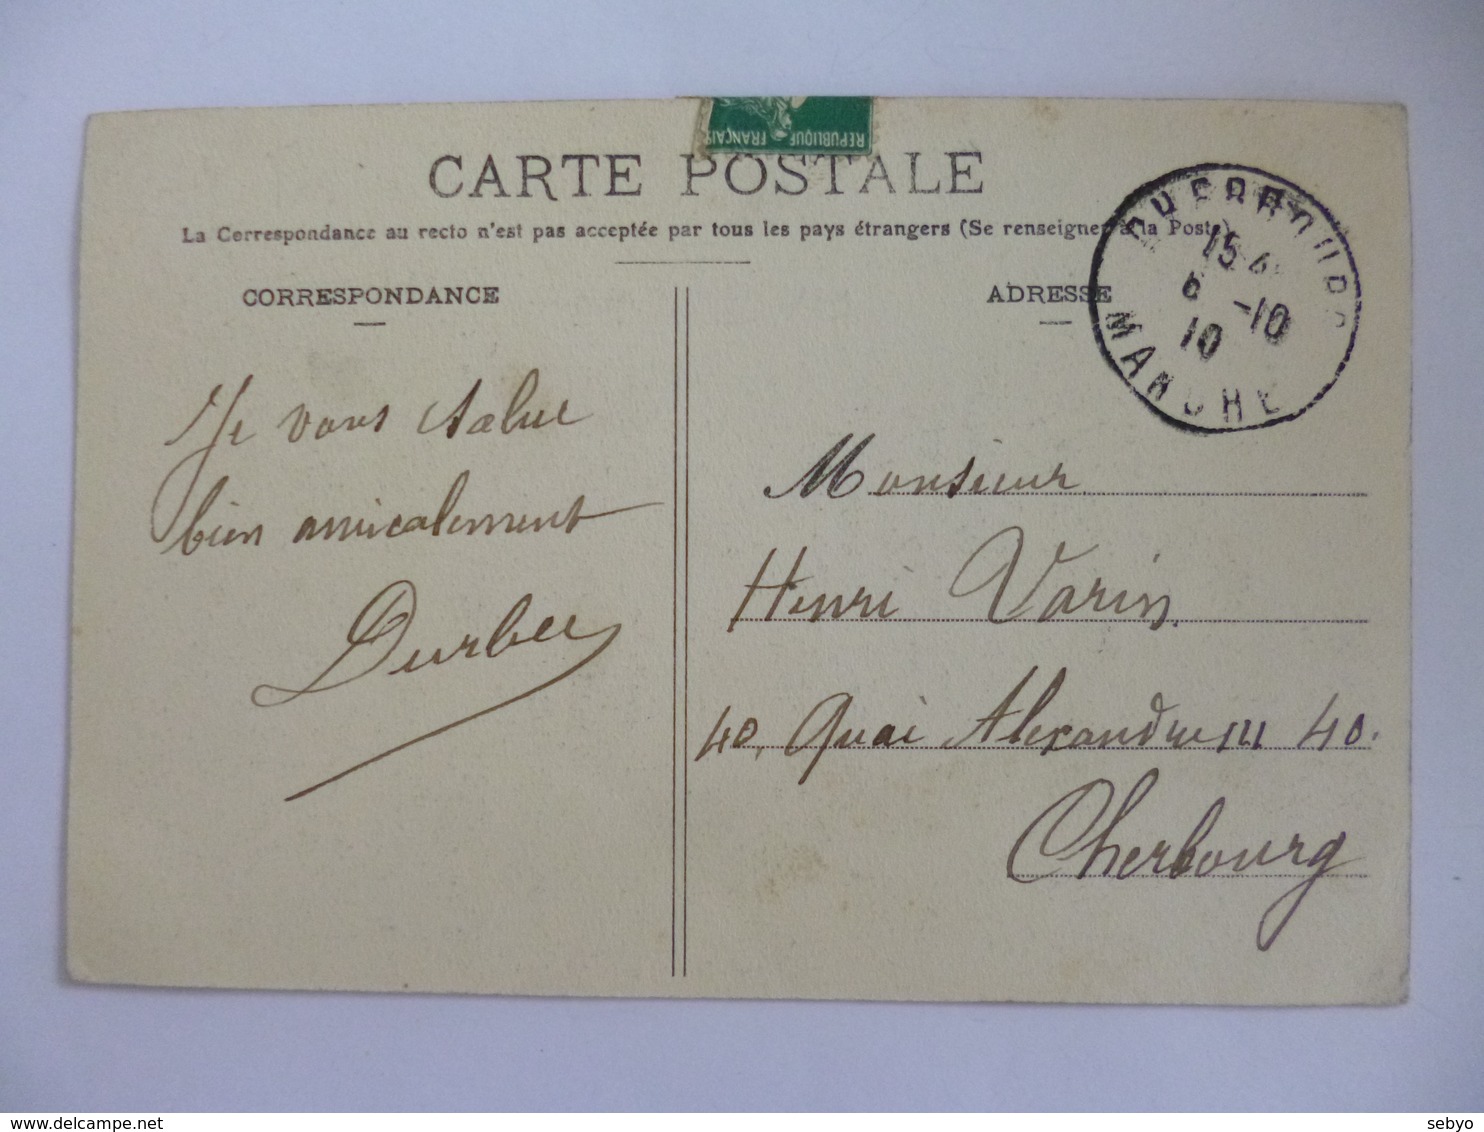 REPUBLIQUE FRANÇAIS
CARTE POSTALE
La Correspondance au recto n'est pas acceptée par tous les pays étrangers (Se renseigner à la Poste)
CORRESPONDANCE
ADRESSE
CHERBOURG
15
6 -10
10
MANCHE
Je vous salue
bien amicalement
Monsieur
Henri Varin
40, Quai Alexandre III 40.
Cherbourg
delcampe.net
sebyo